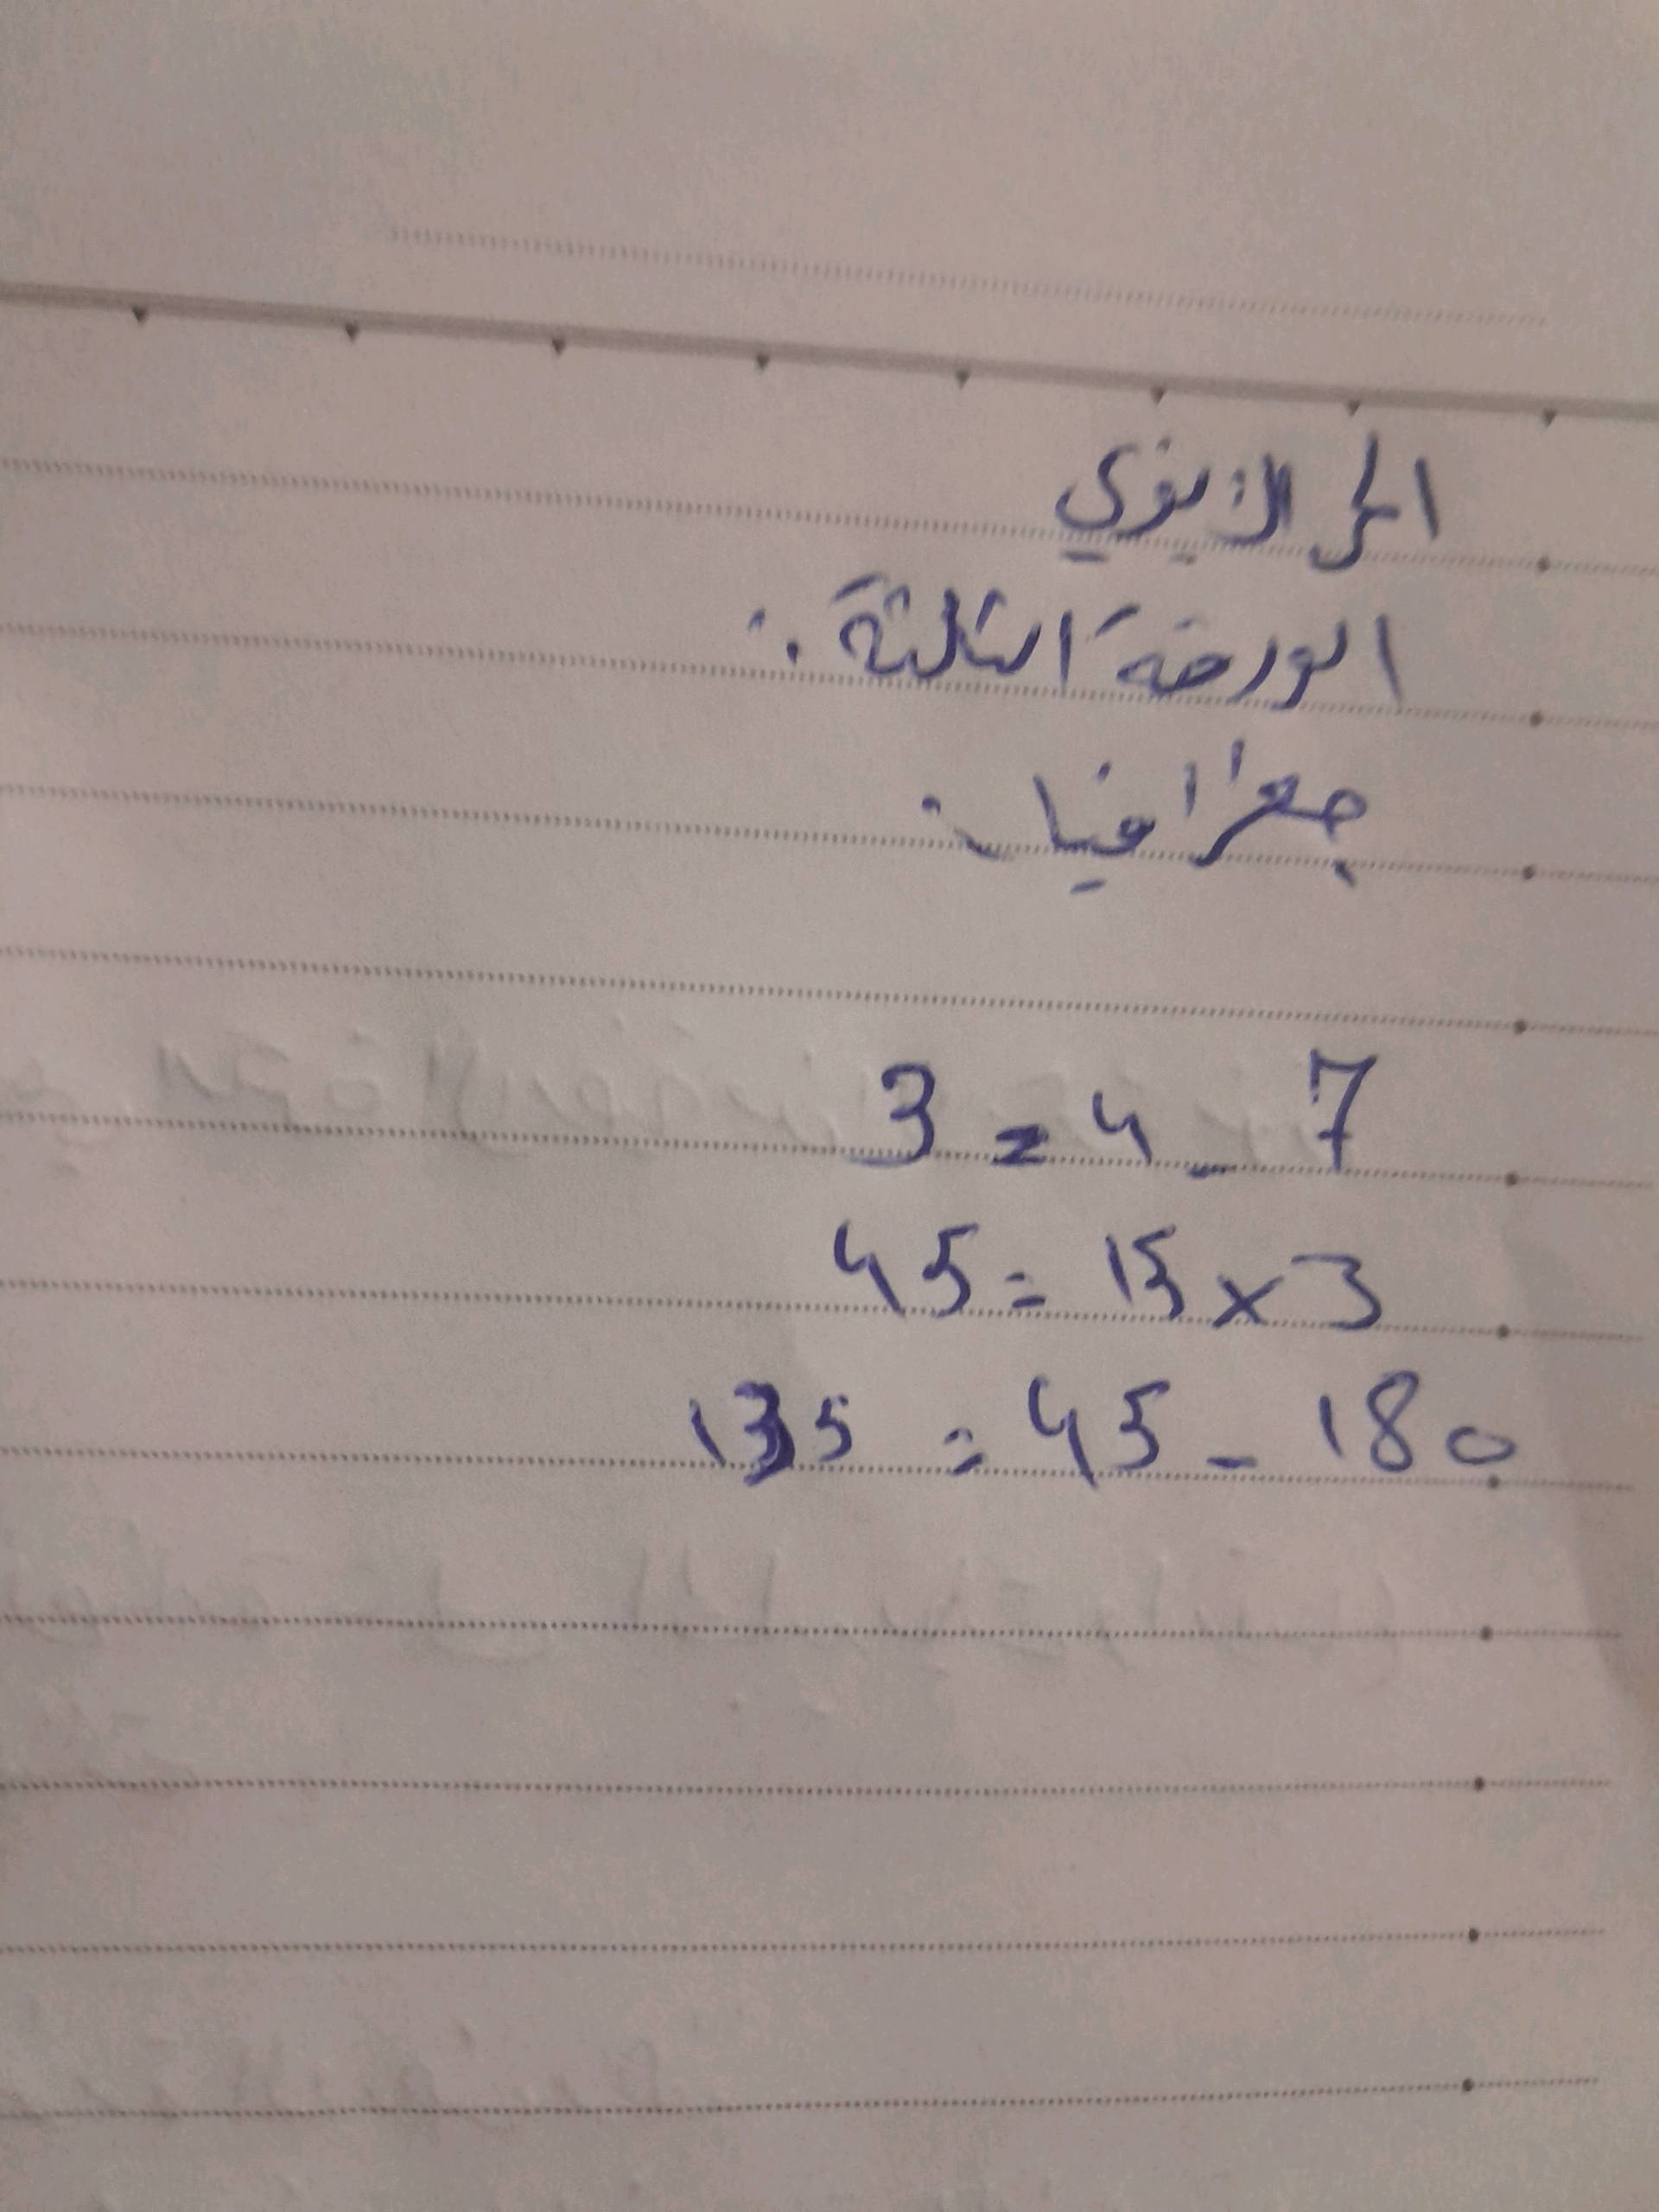 الورقة الثالثة:
جغرافيا:
7 - 4 = 3
3 × 15 = 45
180 - 45 = 135